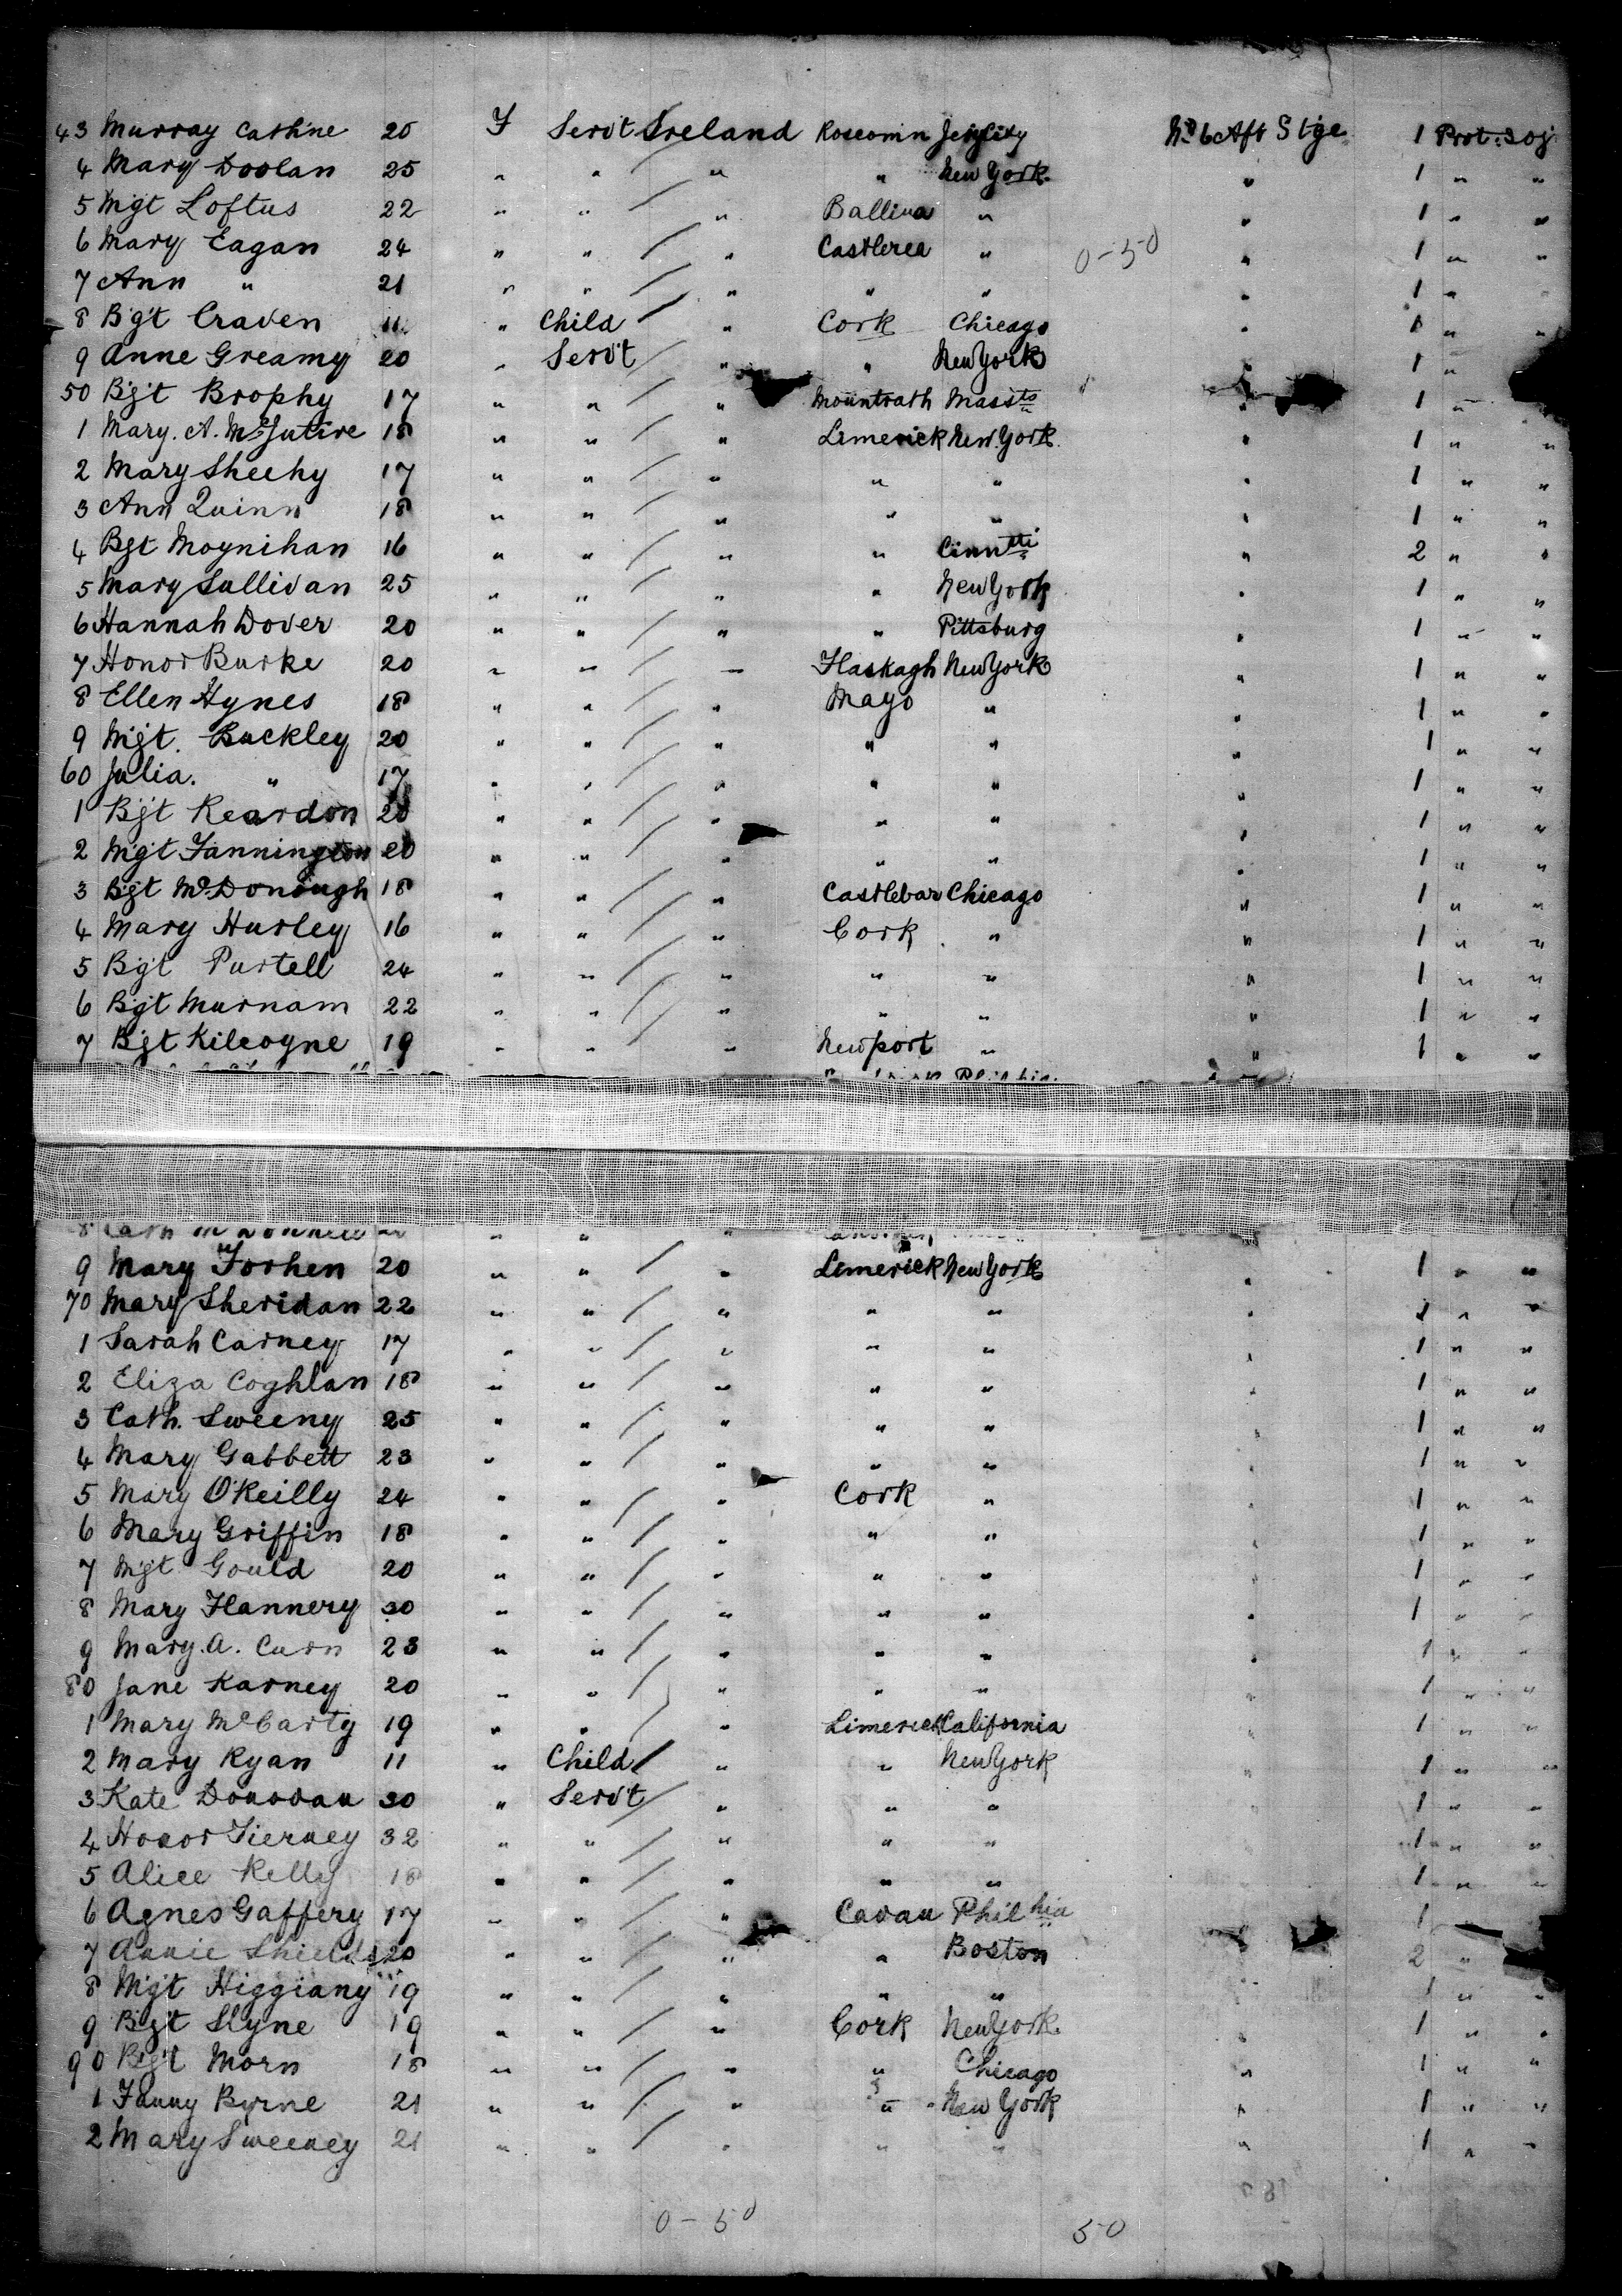 43 Murray Cathne 20 F Servt Ireland Roscomn Jersy City No 6 Aft Stge 1 Prot. Soj
4 Mary Doolan 25 " " " " New York " 1 " "
5 Mgt Loftus 22 " " " Ballina " " 1 " "
6 Mary Eagan 24 " " " Castlerea " 0-50 " 1 " "
7 Ann " 21 " " " " " " 1 " "
8 Bgt Craven 11 " Child " Cork Chicago " 1 " "
9 Anne Greamy 20 " Servt " " New York " 1 "
50 Bgt Brophy 17 " " " Mountrath Massts 1 "
1 Mary. A. McIntire 18 " " " Limerick New York " 1 " "
2 Mary Sheehy 17 " " " " " " 1 " "
3 Ann Quinn 18 " " " " " " 1 " "
4 Bgt Moynihan 16 " " " " Cinntti " 2 " "
5 Mary Sullivan 25 " " " " New York " 1 " "
6 Hannah Dover 20 " " " " Pittsburg " 1 " "
7 Honor Burke 20 " " " Flaskagh New York " 1 " "
8 Ellen Hynes 18 " " " Mayo " " 1 " "
9 Mgt. Buckley 20 " " " " " " 1 " "
60 Julia. " 17 " " " " " " 1 " "
1 Bgt Reardon 20 " " " " " " 1 " "
2 Mgt Fannington 20 " " " " " " 1 " "
3 Bgt McDonough 18 " " " Castlebar Chicago " 1 " "
4 Mary Hurley 16 " " " Cork " " 1 " "
5 Bgt Purtell 24 " " " " " " 1 " "
6 Bgt Murnam 22 " " " " " " 1 " "
7 Bgt Kilcoyne 19 " " " Newport " " 1 " "
8 Cath McDonnell " " "
9 Mary Forhen 20 " " " Limerick New York " 1 " "
70 Mary Sheridan 22 " " " " " " 1 " "
1 Sarah Carney 17 " " " " " " 1 " "
2 Eliza Coghlan 18 " " " " " " 1 " "
3 Cath. Sweeny 25 " " " " " " 1 " "
4 Mary Gabbett 23 " " " " " " 1 " "
5 Mary O'Reilly 24 " " " Cork " " 1 " "
6 Mary Griffin 18 " " " " " " 1 " "
7 Mgt Gould 20 " " " " " " 1 " "
8 Mary Flannery 30 " " " " " " 1 " "
9 Mary. A. Curn 23 " " " " " " 1 " "
80 Jane Karney 20 " " " " " " 1 " "
1 Mary McCarty 19 " " " Limerick California " 1 " "
2 Mary Ryan 11 " Child " " New York " 1 " "
3 Kate Donovan 30 " Servt " " " " 1 " "
4 Honor Tierney 32 " " " " " " 1 " "
5 Alice Kelly 18 " " " " " " 1 " "
6 Agnes Gaffery 17 " " " Cavan Philhia 1
7 Annie Shields 20 " " " " Boston 2 "
8 Mgt Higgiany 19 " " " " " " 1 " "
9 Bgt Slyne 19 " " " Cork New York " 1 " "
90 Bgt Morn 18 " " " " Chicago " 1 " "
1 Fanny Byrne 21 " " " " New York " 1 " "
2 Mary Sweeney 21 " " " " " " 1 " "
0-50 50